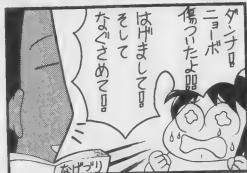 ダンナ!!
ニョーボ
傷ついたよ!!
はげまして!!
そして
なぐさめて!!
なげづり